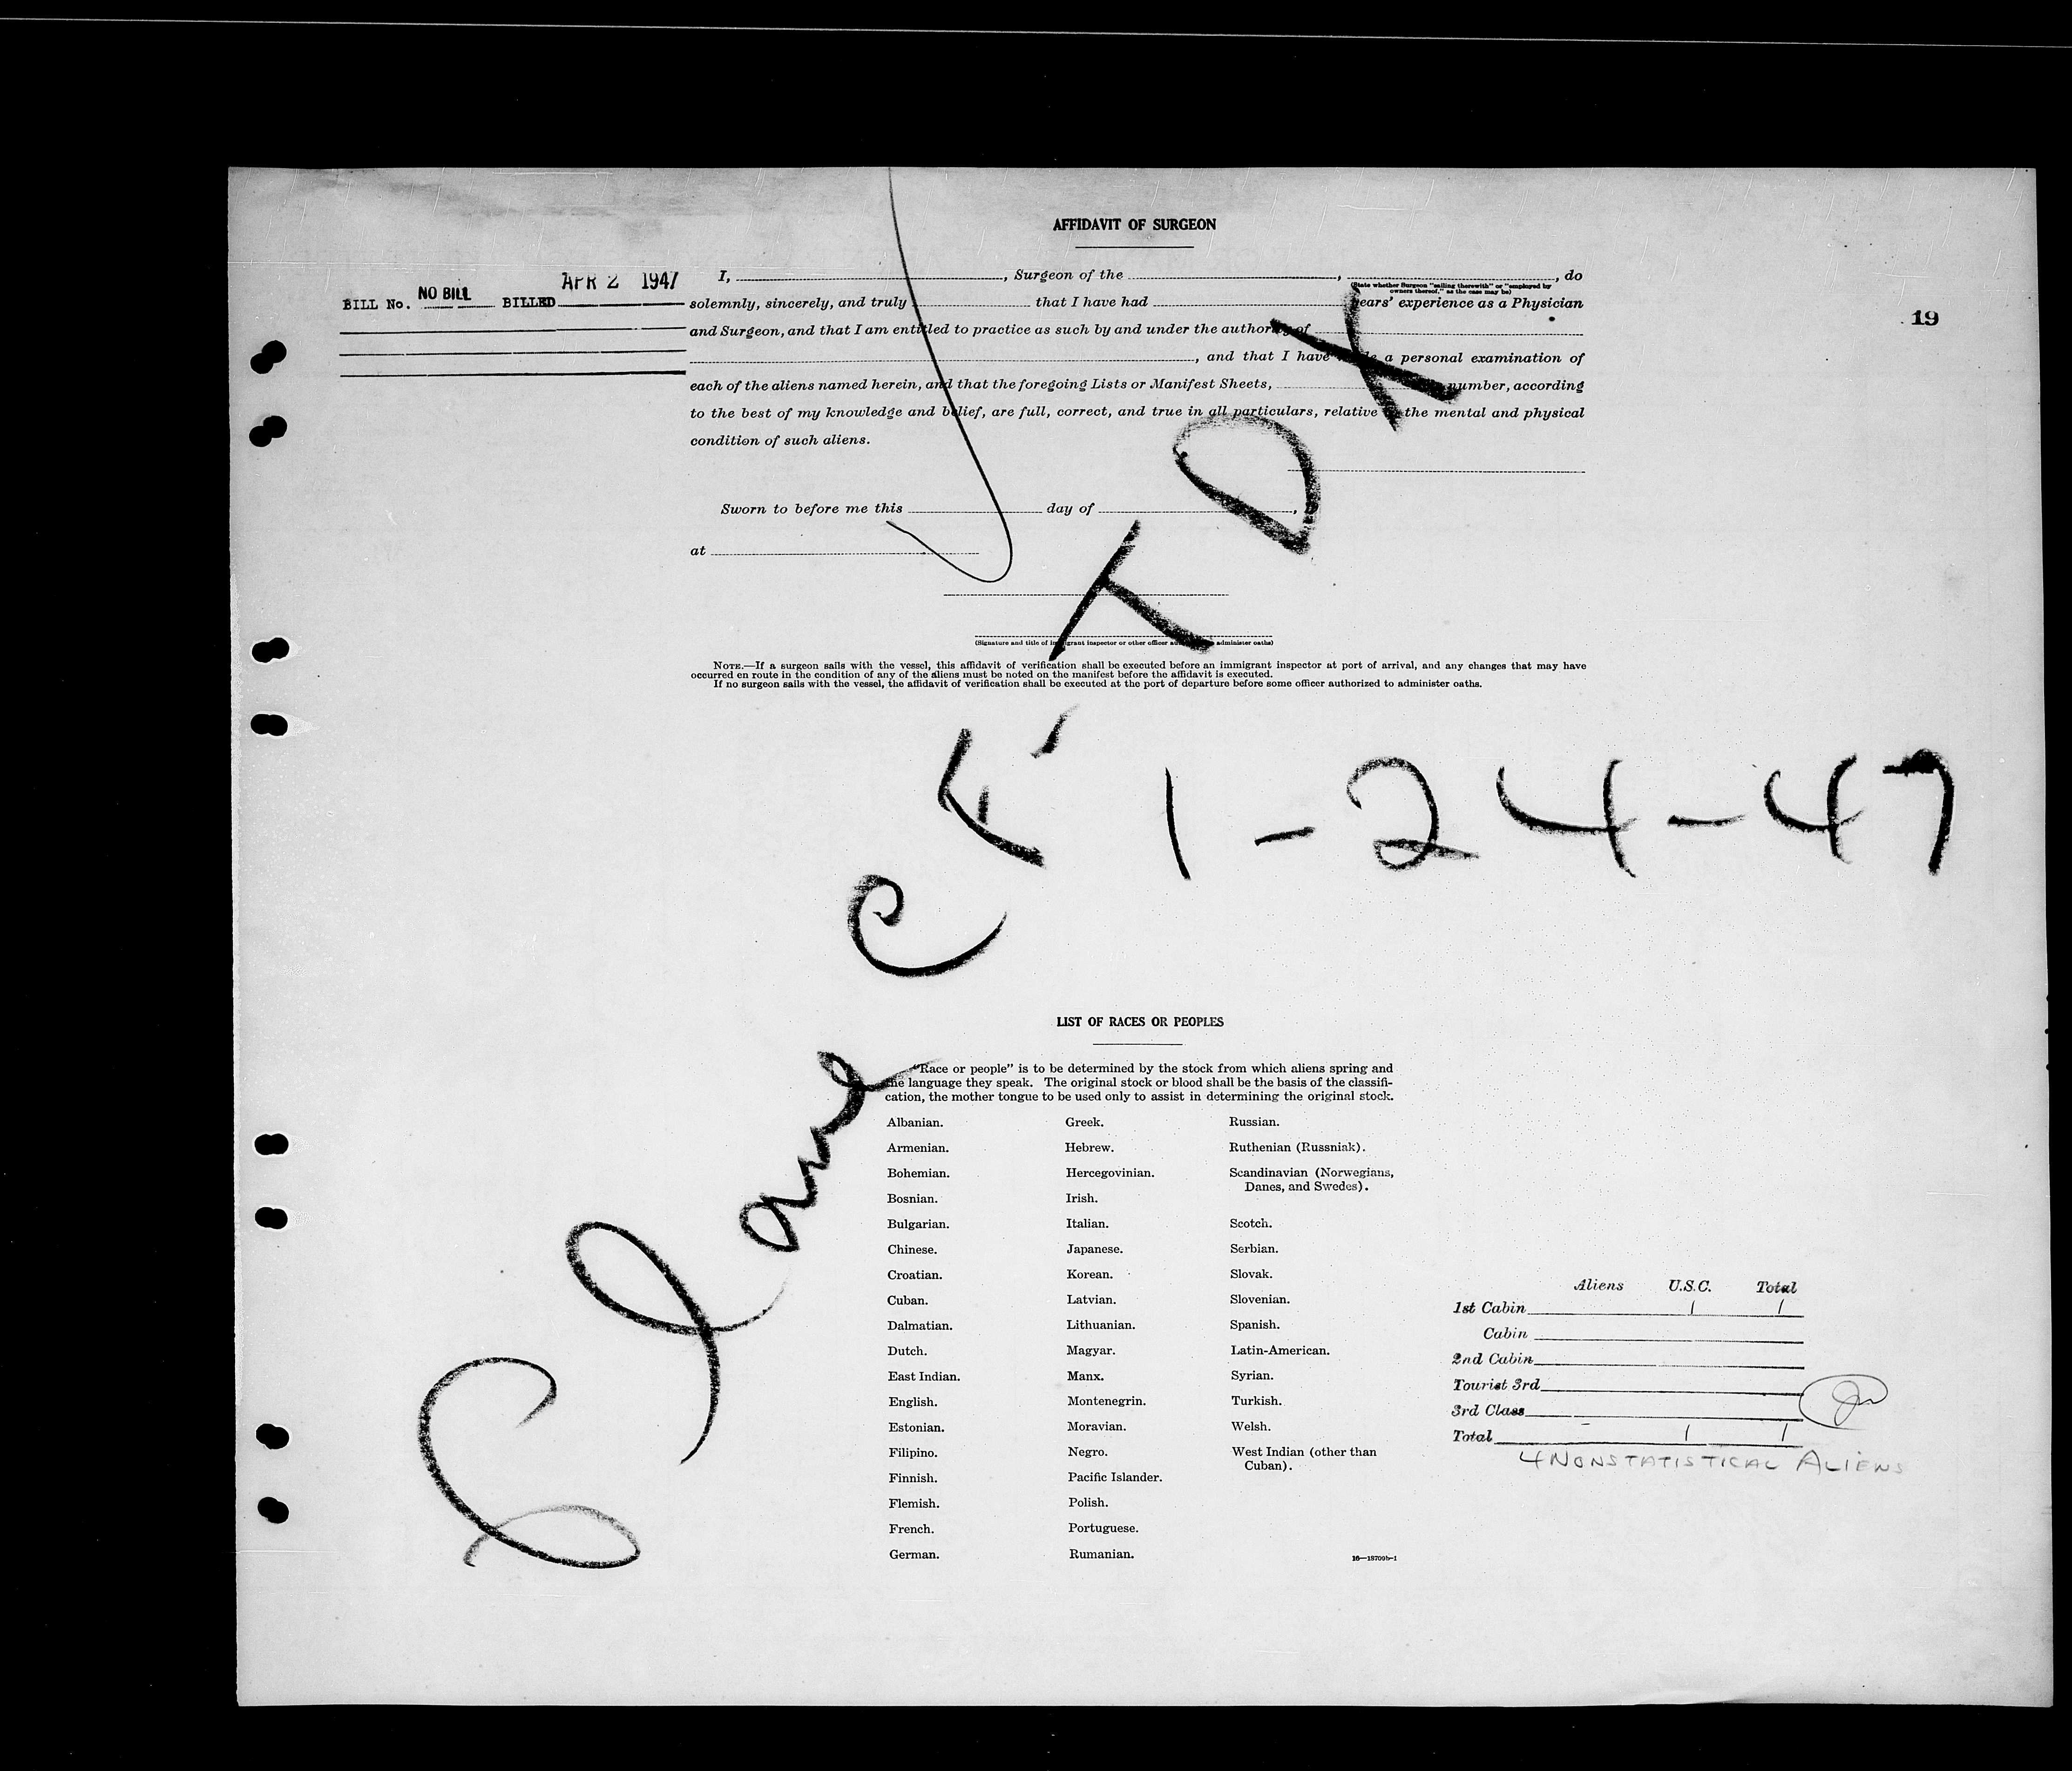 AFFIDAVIT OF SURGEON
BILL No. NO BILL BILLED APR 2 1947
19
I, , Surgeon of the , , do
(State whether Surgeon "sailing therewith" or "employed by
owners thereof," as the case may be)
solemnly, sincerely, and truly that I have had years' experience as a Physician
and Surgeon, and that I am entitled to practice as such by and under the authority of
, and that I have made a personal examination of
each of the aliens named herein, and that the foregoing Lists or Manifest Sheets, number, according
to the best of my knowledge and belief, are full, correct, and true in all particulars, relative to the mental and physical
condition of such aliens.
Sworn to before me this day of ,
at
(Signature and title of immigrant inspector or other officer authorized to administer oaths)
NOTE.—If a surgeon sails with the vessel, this affidavit of verification shall be executed before an immigrant inspector at port of arrival, and any changes that may have
occurred en route in the condition of any of the aliens must be noted on the manifest before the affidavit is executed.
If no surgeon sails with the vessel, the affidavit of verification shall be executed at the port of departure before some officer authorized to administer oaths.
1-24-47
LIST OF RACES OR PEOPLES
"Race or people" is to be determined by the stock from which aliens spring and
the language they speak. The original stock or blood shall be the basis of the classifi-
cation, the mother tongue to be used only to assist in determining the original stock.
Albanian.
Armenian.
Bohemian.
Bosnian.
Bulgarian.
Chinese.
Croatian.
Cuban.
Dalmatian.
Dutch.
East Indian.
English.
Estonian.
Filipino.
Finnish.
Flemish.
French.
German.
Greek.
Hebrew.
Hercegovinian.
Irish.
Italian.
Japanese.
Korean.
Latvian.
Lithuanian.
Magyar.
Manx.
Montenegrin.
Moravian.
Negro.
Pacific Islander.
Polish.
Portuguese.
Rumanian.
Russian.
Ruthenian (Russniak).
Scandinavian (Norwegians,
Danes, and Swedes).
Scotch.
Serbian.
Slovak.
Slovenian.
Spanish.
Latin-American.
Syrian.
Turkish.
Welsh.
West Indian (other than
Cuban).
16—18709b-1
Aliens U.S.C. Total
1st Cabin 1 1
Cabin
2nd Cabin
Tourist 3rd
3rd Class
Total - 1 1
4 NONSTATISTICAL ALIENS